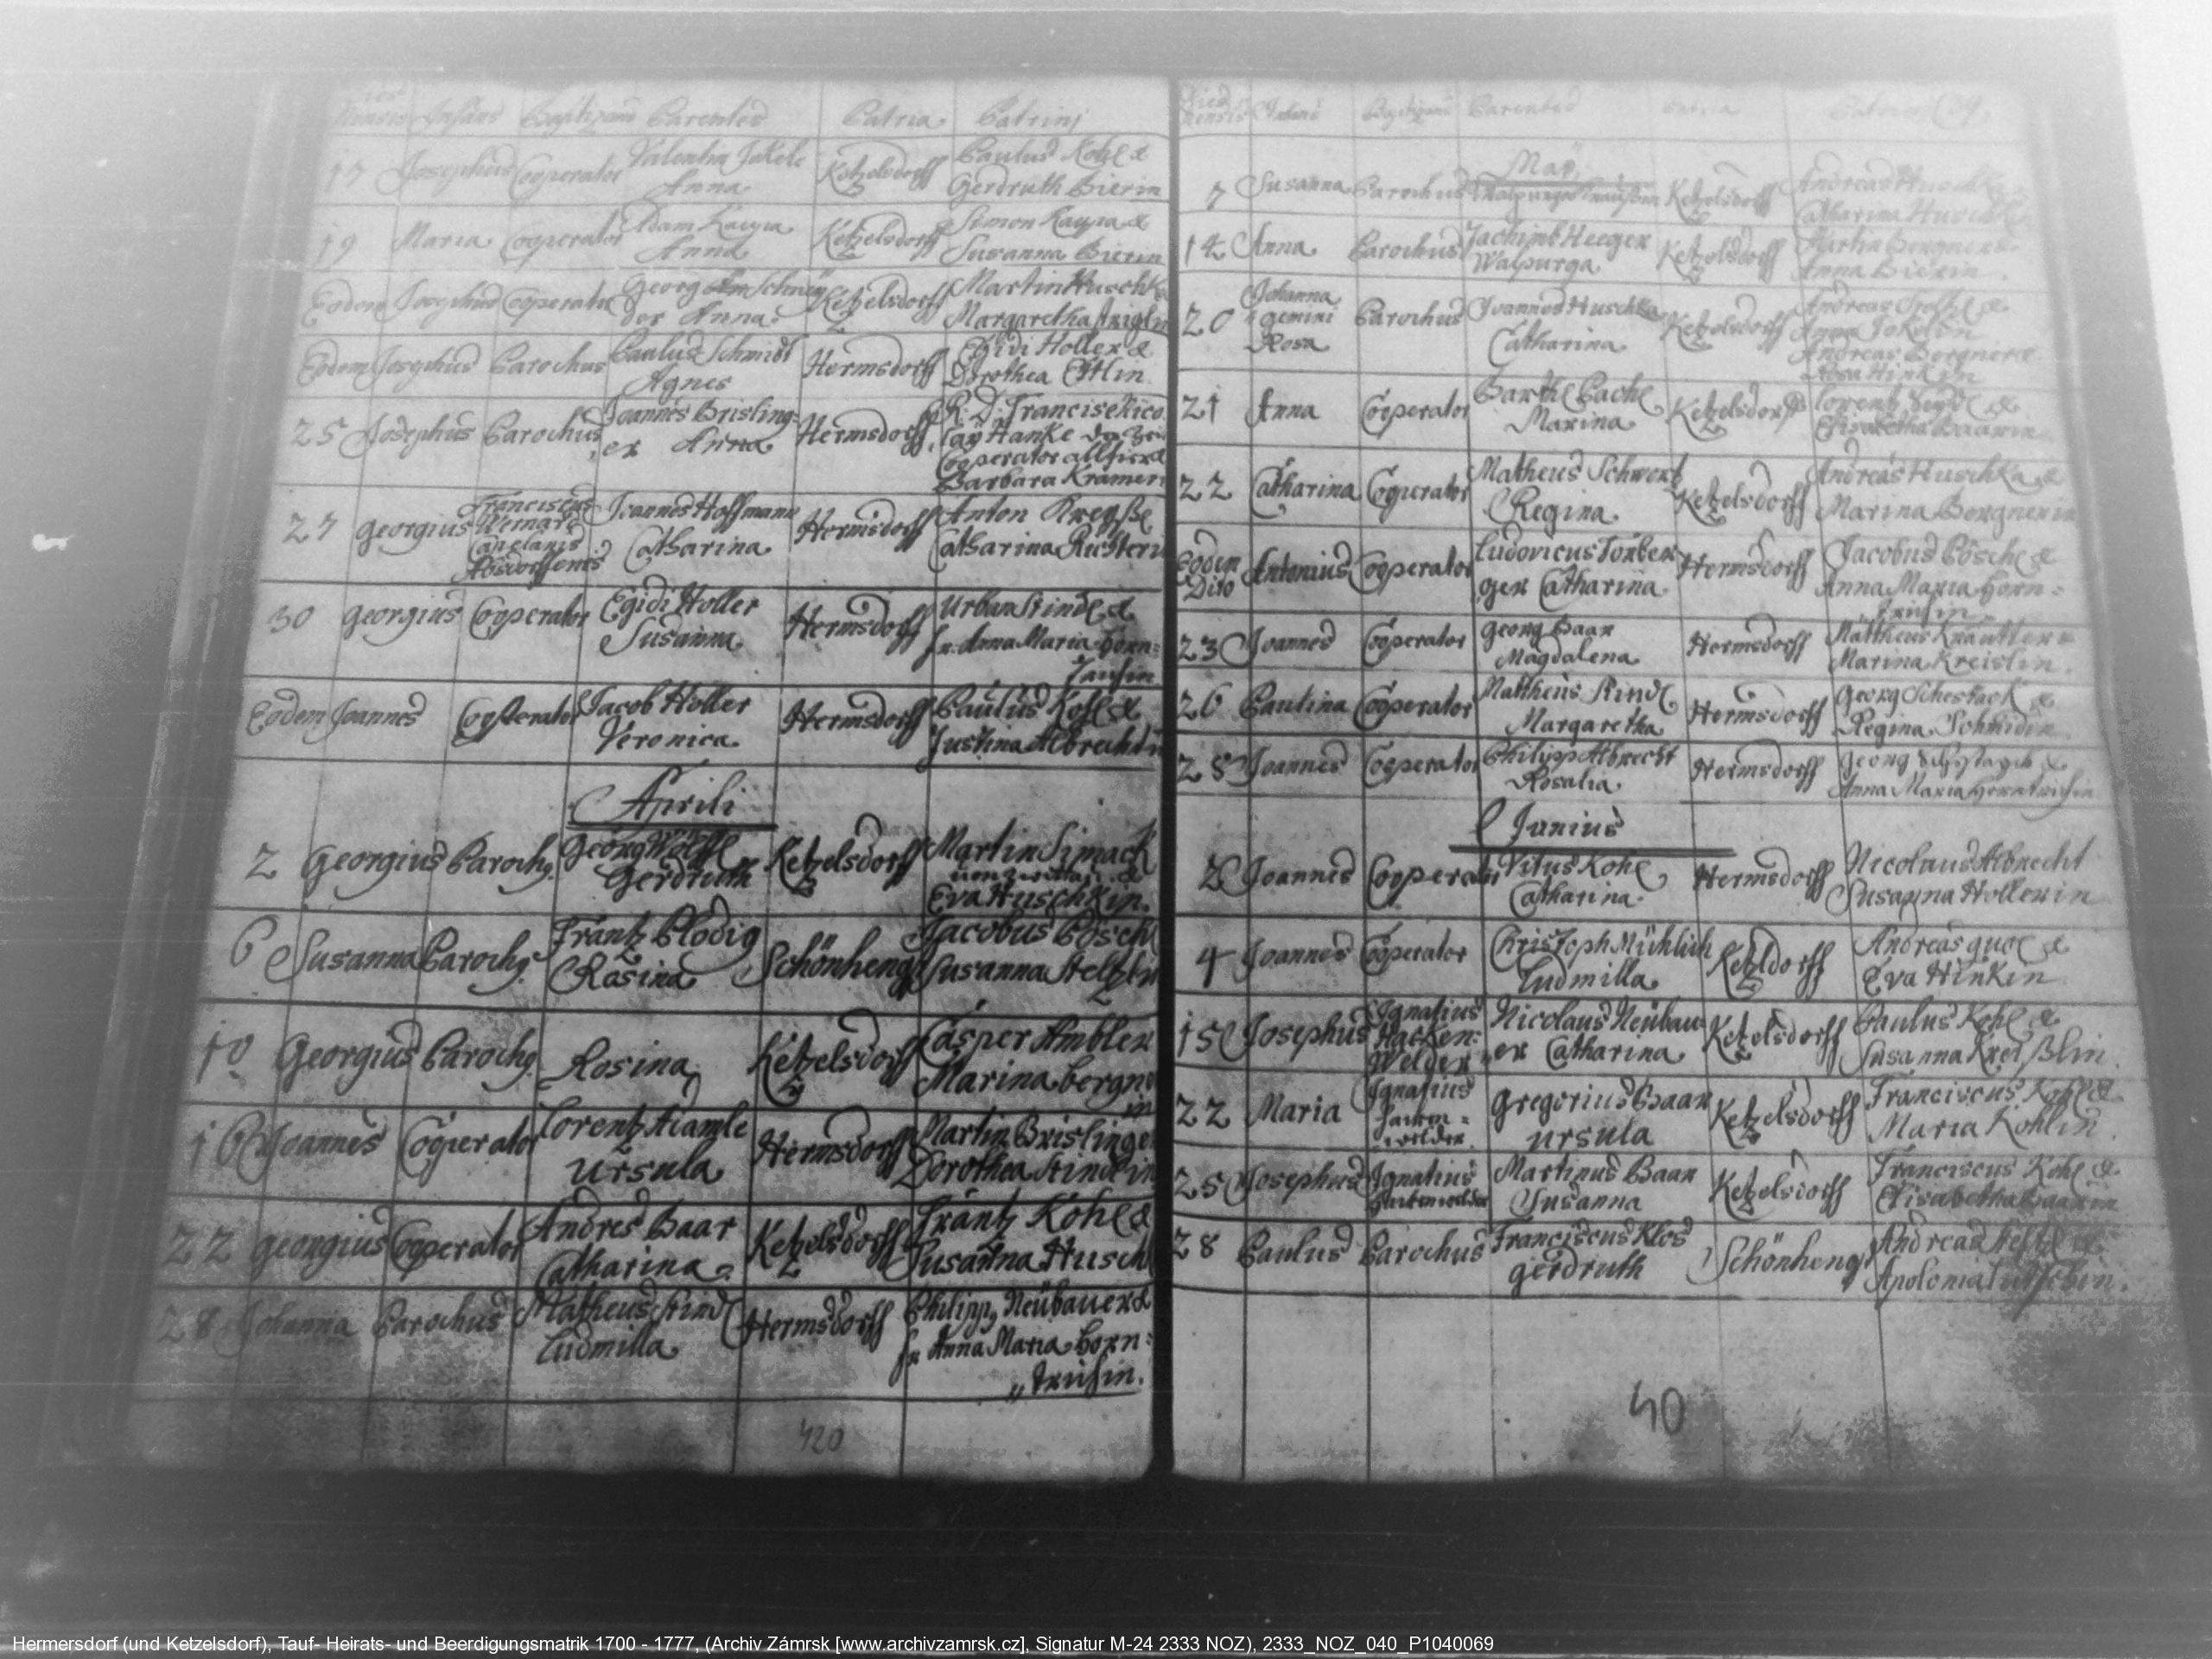 Mensis Infans Baptizans Parentes Patria Patrini
17 Josephus Cooperator Valentin Jakele Anna Ketzelsdorff Paulus Kohl & Gerdruth Bierin
19 Maria Cooperator Adam Kaupa Anna Ketzelsdorff Simon Kaupa & Susanna Bierin
Eodem Josephus Cooperator Georg Schnei
der Anna Ketzelsdorff Martin Huschka
Margaretha
Eodem Josephus Parochus Paulus Schmidt
Agnes Hermsdorff Egidi Holler &
Dorothea
25 Josephus Parochus Joannes Brisling=
er Anna Hermsdorff R: D: Francisc
Hanke
Cooperator allhier &
Barbara Kramerin
27 Georgius Franciscus
Capelanus
Joannes Hoffmann
Catharina Hermsdorff Anton
Catharina
30 Georgius Cooperator Egidi Holler
Susanna Hermsdorff Urban Stindl &
Fr: Anna Maria Horn=
Eodem Joannes Cooperator Jacob Holler
Veronica Hermsdorff Paulus Kohl &
Justina Albrechtin
Aprili
2 Georgius Paroch9 Georg Wolff
Gerdruth Ketzelsdorff Martin Simack
von &
Eva Huschkin.
6 Susanna Paroch9 Frantz Plodig
Rosina Schönhengst Jacobus Pöschl
Susanna
10 Georgius Paroch9
Rosina Ketzelsdorff Casper Ambler
Marina Bergner
in
16 Joannes Cooperator Lorentz Adamle
Ursula Hermsdorff Martin Brislinger
Dorothea Stindlin
22 Georgius Cooperator Andres Baar
Catharina Ketzelsdorff Frantz Kohl &
Susanna Husch
28 Johanna Parochus Matheus Stindl
Ludmilla Hermsdorff Philipp Neubauer &
Fr Anna Maria Horn=
„trichin.
420
Dies
Mensis Infans Baptizans Parentes Patria Patrini 39.
May
7 Susanna Parochus Walpurga Ketzelsdorff Andreas Huschka
Catharina Huschkin
14 Anna Parochus Jachimb Heeger
Walpurga Ketzelsdorff Martin Bergner &
Anna Bierin
20 Johanna
gemini
Rosa Parochus Joannes Huschka
Catharina Ketzelsdorff Andreas &
Anna Jokelin
Andreas Bergner &
Rosa Hinkin
21 Anna Cooperator Barthl Pachl
Marina Ketzelsdorff Lorentz &
Elisabetha Baarin
22 Catharina Cooperator Matheus Schwerl
Regina Ketzelsdorff Andreas Huschka &
Marina Bergnerin
Eodem
Dito Antonius Cooperator Ludovicus Törber
ger Catharina Hermsdorff Jacobus Pöschl &
Anna Maria Horn=
trichin
23 Joannes Cooperator Georg Baar
Magdalena Hermsdorff Mattheus Krautter &
Marina Kreislin.
26 Paulina Cooperator Mattheus Stindl
Margaretha Hermsdorff Georg Schestack &
Regina Schmidin
28 Joannes Cooperator Philipp Albrecht
Rosalia Hermsdorff Georg &
Anna Maria Horntrichin
Junius
2 Joannes Cooperator Vitus Kohl
Catharina Hermsdorff Nicolaus Albrecht
Susanna Hollerin
4 Joannes Cooperator Christoph Mühlich
Ludmilla Ketzldorff Andreas &
Eva Hinkin
15 Josephus Ignatius
Hacken=
Welder Nicolaus Neubau=
er Catharina Ketzelsdorff Paulus Kohl &
Susanna Kreißlin
22 Maria Ignatius
Hacken=
welder Gregorius Baar
Ursula Ketzelsdorff Franciscus Kohl &
Maria Kohlin
25 Josephus Ignatius
Hackenwelder Martinus Baar
Susanna Ketzelsdorff Franciscus Kohl &
Elisabetha Baarin
28 Paulus Parochus Franciscus Klos
Gerdruth Schönhengst Andreas &
Apolonia
40
Hermersdorf (und Ketzelsdorf), Tauf- Heirats- und Beerdigungsmatrik 1700 - 1777, (Archiv Zámrsk [www.archivzamrsk.cz], Signatur M-24 2333 NOZ), 2333_NOZ_040_P1040069